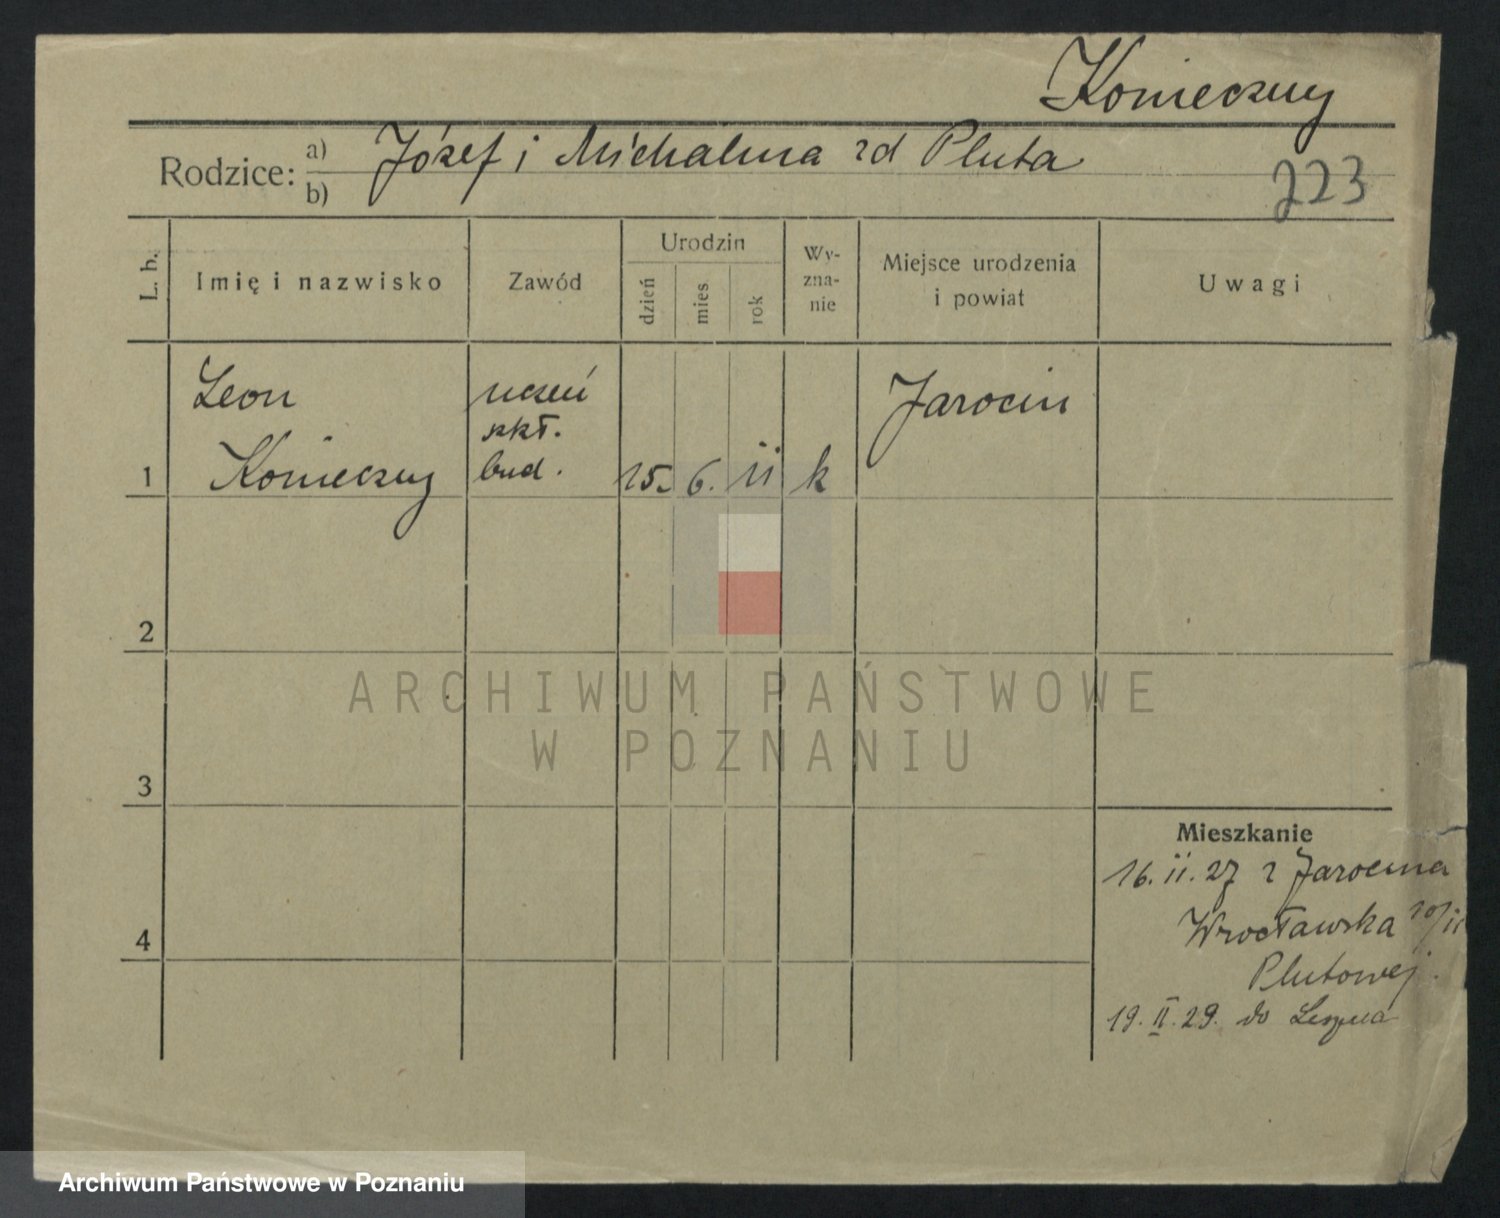 Konieczny
Rodzice: a) Józef i Michalina zd Pluta
b)
223
L. b.
Imię i nazwisko
Zawód
Urodzin
dzień
mies
rok
Wy-
zna-
nie
Miejsce urodzenia
i powiat
Uwagi
1
Leon
Konieczny
uczeń
szkł.
bud.
15. 6. 11 k
Jarocin
2
3
4
Mieszkanie
16. 11. 27 z Jarocina
Wrocławska
Plutowej.
19. II. 29. do Leszna
ARCHIWUM PAŃSTWOWE
W POZNANIU
Archiwum Państwowe w Poznaniu